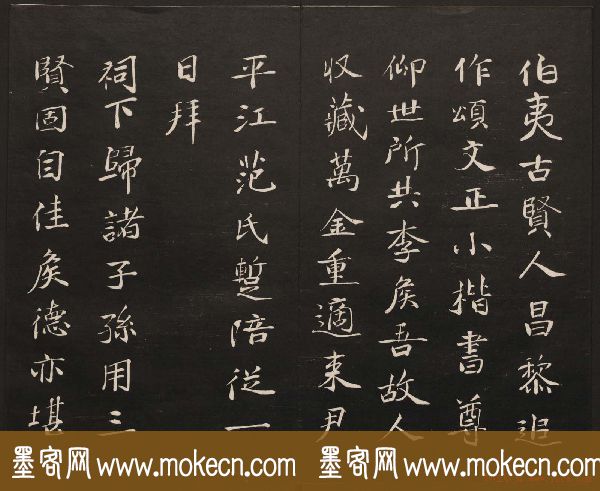 伯夷古賢人昌黎追
作頌文正小楷書尊
仰世所共李侯吾故人
收藏萬金重適来尹
平江范氏蹔陪從一
日拜
祠下歸諸子孫用三
賢固自佳矦德亦堪
墨客网 www.mokecn.com 墨客网 www.mokecn.com